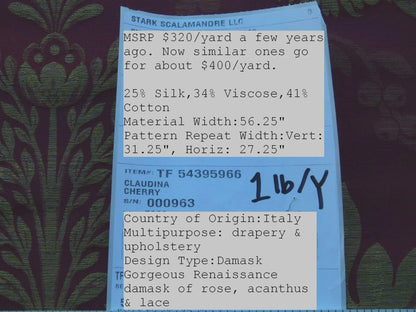 STARK SCALAMANDRE LLC
MSRP $320/yard a few years
ago. Now similar ones go
for about $400/yard.
25% Silk,34% Viscose,41%
Cotton
Material Width:56.25"
Pattern Repeat Width:Vert:
31.25", Horiz: 27.25"
ITEM#: TF 54395966
CLAUDINA
CHERRY
1 lb/Y
S/N: 000963
Country of Origin:Italy
Multipurpose: drapery &
upholstery
Design Type:Damask
Gorgeous Renaissance
damask of rose, acanthus
& lace